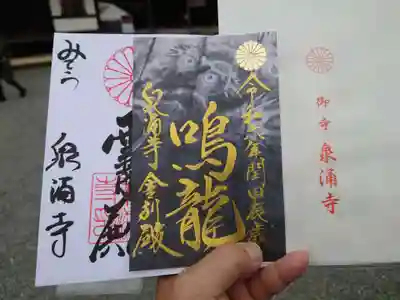 みてら
泉涌寺
令和六年閏甲辰歳
鳴龍
泉涌寺
舎利殿
御寺
泉涌寺